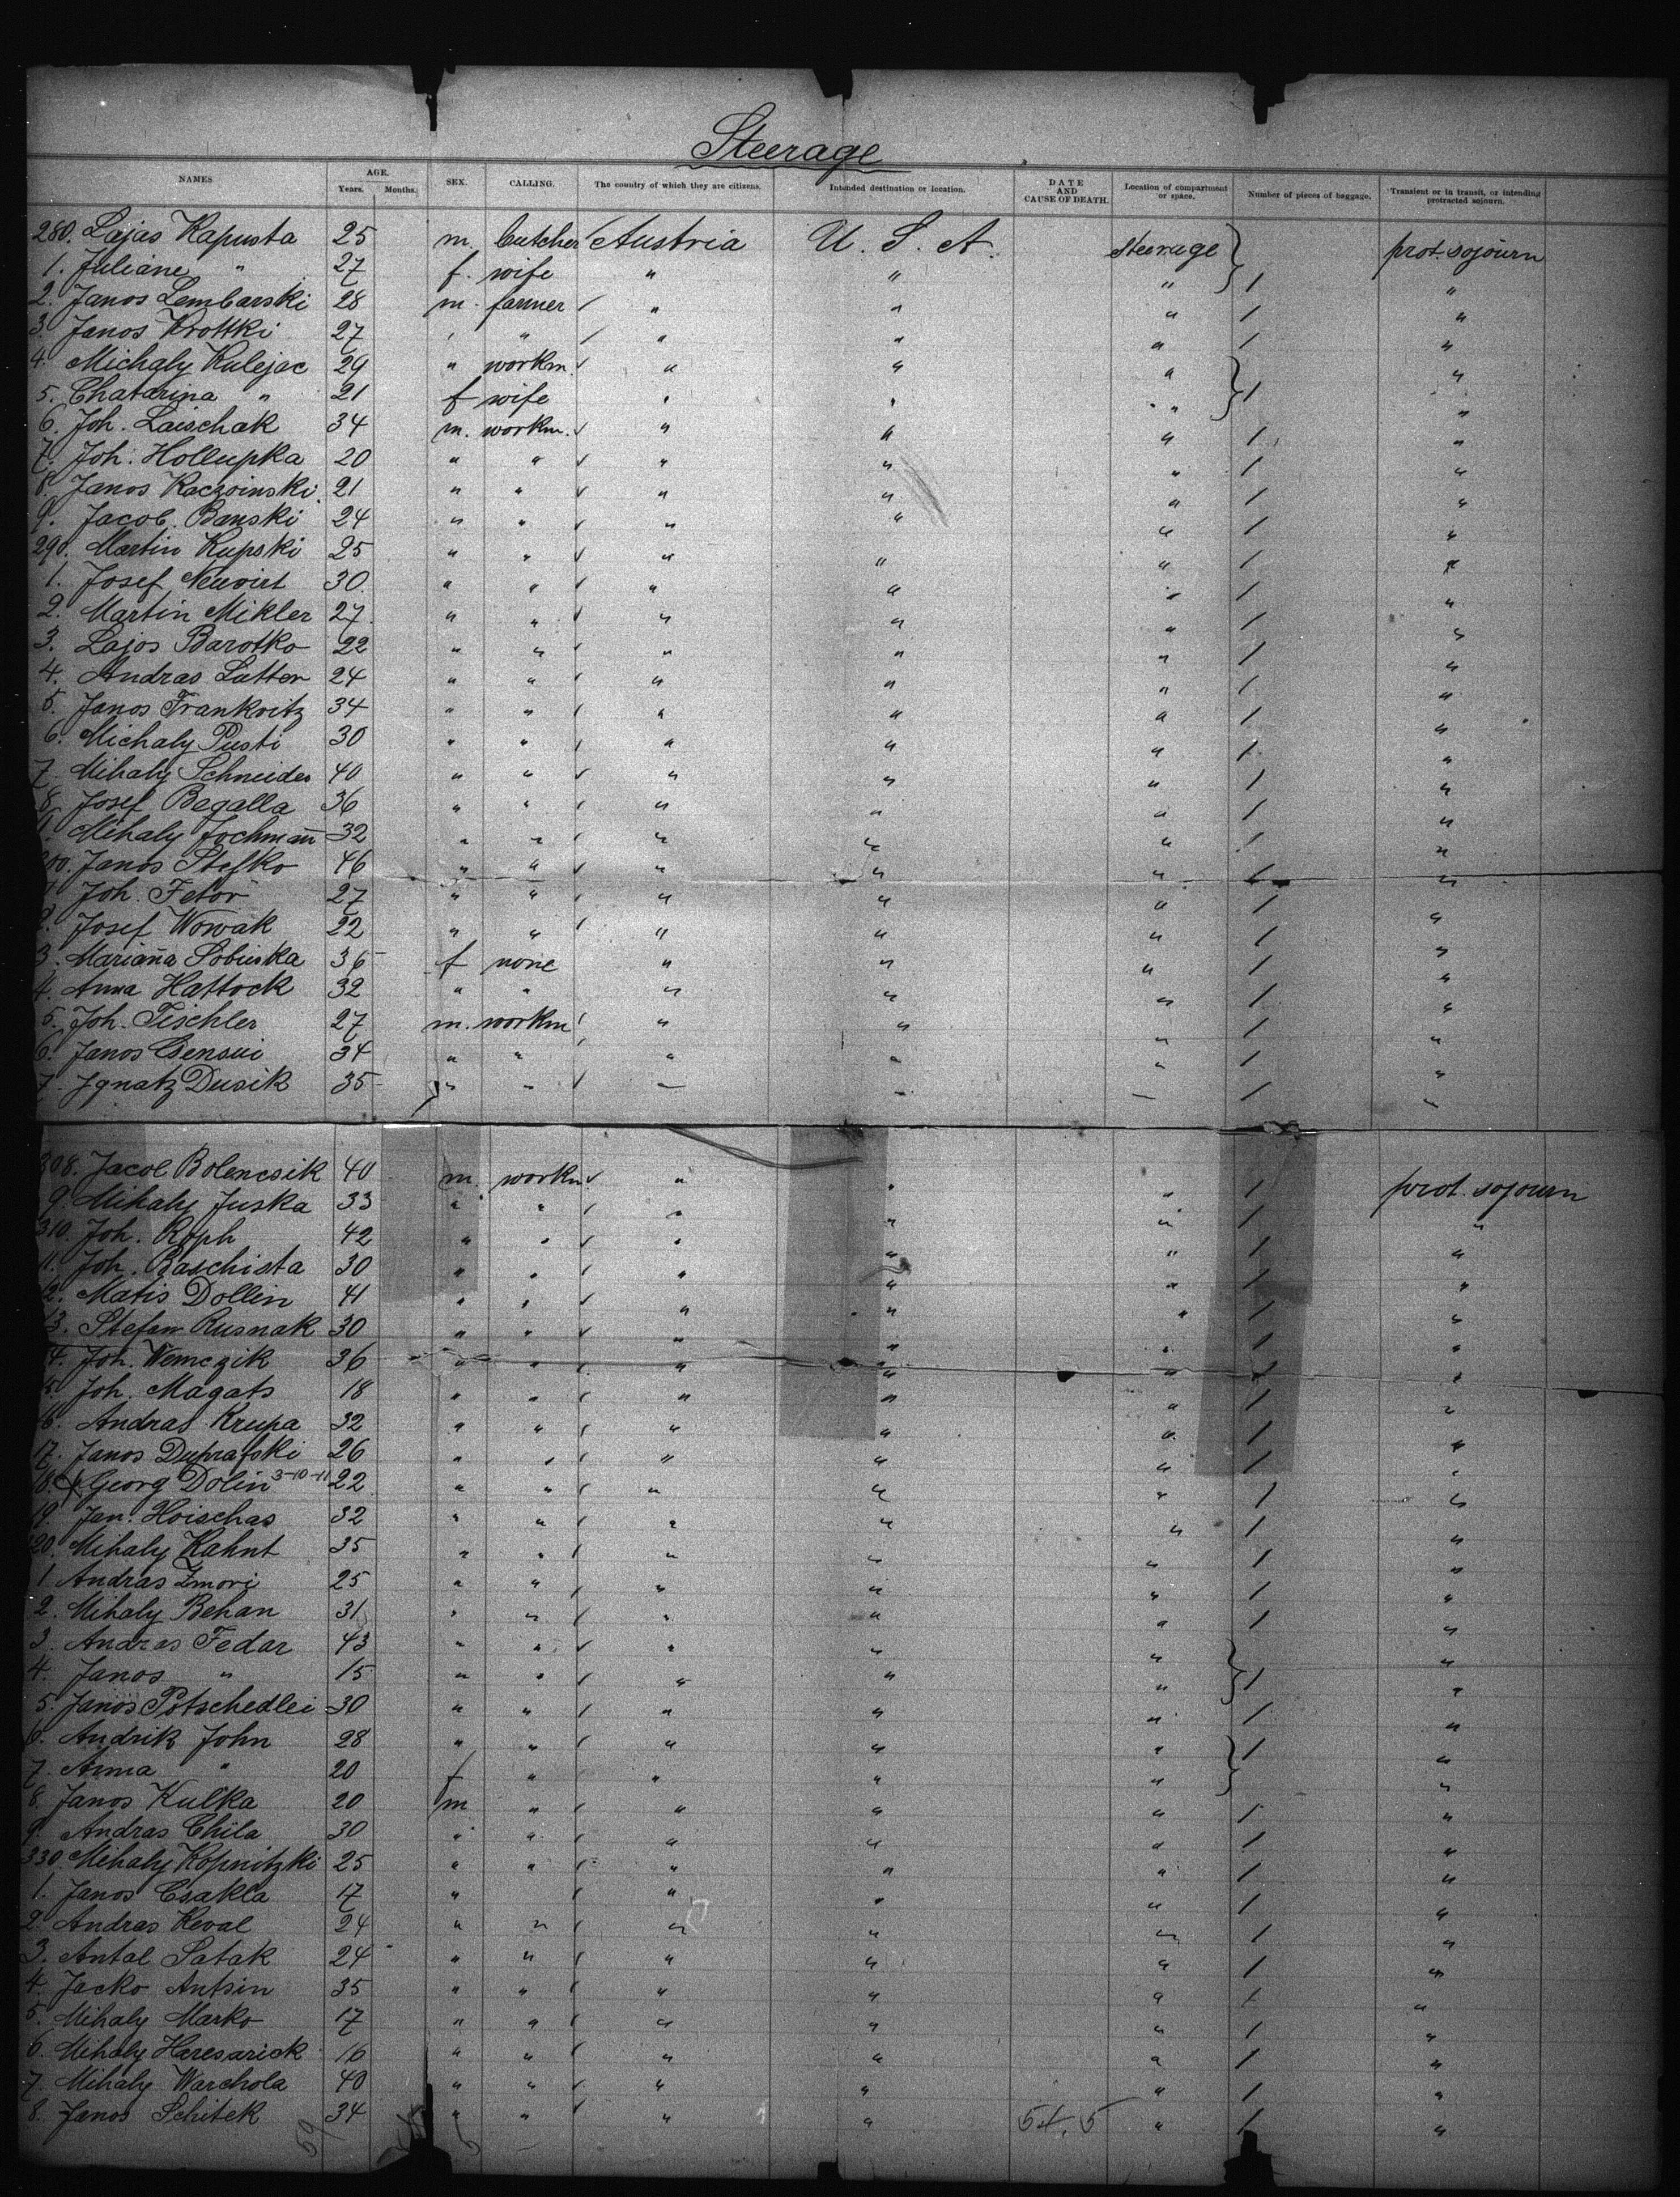 Steerage
NAMES AGE. Years. Months. SEX. CALLING. The country of which they are citizens. Intended destination or location. DATE AND CAUSE OF DEATH. Location of compartment or space. Number of pieces of baggage. Transient or in transit, or intending protracted sojourn.
280. Lajas Kapusta 25 m. butcher Austria U. S. A. Steerage prot. sojourn
1. Juliane " 27 f. wife " " " / "
2. Janos Lembarski 28 m. farmer / " " " / "
3. Janos Krottki 27 " " / " " " / "
4. Michaly Kulejac 29 " workm. " " " "
5. Chatarina " 21 f wife " " " / "
6. Joh. Laischak 34 m. workm. " " " / "
7. Joh. Hollupka 20 " " " " " / "
8. Janos Kaczoinski 21 " " " " " / "
9. Jacob Banski 24 " " " " " / "
290. Martin Kupski 25 " " " " " / "
1. Josef Neuvirt 30 " " " " " / "
2. Martin Mikler 27 " " " " " / "
3. Lajos Barotko 22 " " " " " / "
4. Andras Lutter 24 " " " " " / "
5. Janos Frankvitz 34 " " " " " / "
6. Michaly Pusti 30 " " " " " / "
7. Mihaly Schneider 40 " " " " " / "
8. Josef Begalla 36 " " " " " / "
Mihaly Jochmann 32 " " " " " / "
300. Janos Stefko 46 " " " " " / "
Joh. Fetor 27 " " " " " / "
2. Josef Wowak 22 " " " " " / "
3. Marianna Sobinska 36 f none " " " / "
4. Anna Hattock 32 " " " " " / "
5. Joh. Tischler 27 m. workm " " " / "
6. Janos Csensui 34 " " " " " / "
7. Ignatz Dusik 35 " " " " " / "
308. Jacob Bolencsik 40 m. workm " " " / prot. sojourn
9. Mihaly Juska 33 " " " " " / "
310. Joh. Roph 42 " " " " " / "
11. Joh. Baschista 30 " " " " " / "
12. Matis Dollin 41 " " " " " / "
13. Stefan Rusnak 30 " " " " " / "
14. Joh. Wemczik 36 " " " " " / "
15. Joh. Magats 18 " " " " " / "
16. Andras Krupa 32 " " " " " / "
17. Janos Duprafski 26 " " " " " / "
18. Georg Dolin 3-10-11 22 " " " " " / "
19. Jan. Hoischas 32 " " " " " / "
20. Mihaly Kahnt 35 " " " " " / "
1. Andras Zmori 25 " " " " " / "
2. Mihaly Behan 31 " " " " " / "
3. Andras Fedar 43 " " " " " "
4. Janos " 15 " " " " " / "
5. Janos Potschedlei 30 " " " " " / "
6. Andrik John 28 " " " " " / "
7. Anna " 20 f " " " " "
8. Janos Kulka 20 m " " " " / "
9. Andras Chila 30 " " " " " / "
330. Mihaly Kopnitzki 25 " " " " " / "
1. Janos Csakla 17 " " " " / "
2. Andras Keval 24 " " " " " / "
3. Antal Satak 24 " " " " " / "
4. Jacko Antsin 35 " " " " " / "
5. Mihaly Marko 17 " " " " " / "
6. Mihaly Haresarick 16 " " " " " / "
7. Mihaly Warchola 40 " " " " " / "
8. Janos Schitek 34 " " " " " / "
54. 5
59